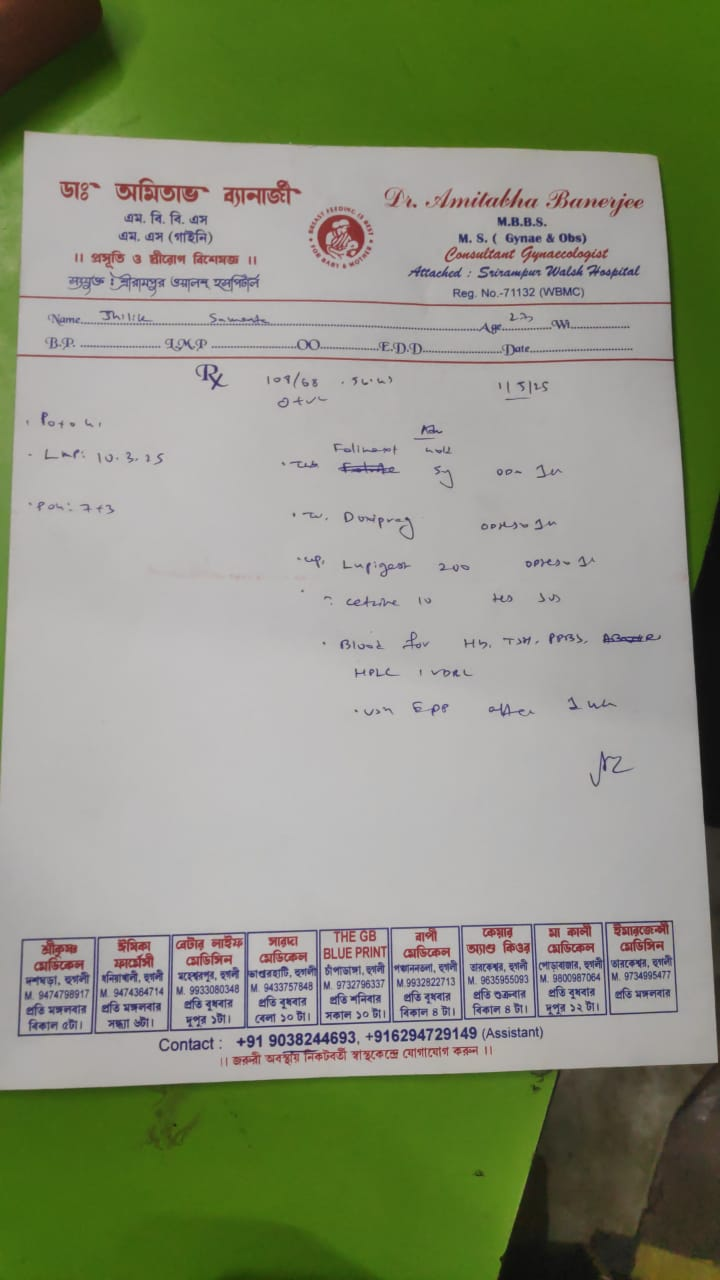 ডাঃ অমিতাভ ব্যানার্জী
এম. বি. বি. এস
এম. এস (গাইনি)
।। প্রসূতি ও স্ত্রীরোগ বিশেষজ্ঞ ।।
সংযুক্ত : শ্রীরামপুর ওয়ালশ হসপিটাল
BREAST FEEDING IS BEST
FOR BABY & MOTHER
Dr. Amitabha Banerjee
M.B.B.S.
M. S. ( Gynae & Obs)
Consultant Gynaecologist
Attached : Srirampur Walsh Hospital
Reg. No.-71132 (WBMC)
Name Jhilik Samanta Age 23 Wt
B.P. L.M.P OO E.D.D Date
Rx 108/68 1/5/25
P0+0
LMP: 10.3.25
POG: 7+3
Adv
Folinext Gold
Doxipreg
Cap. Lupigest 200
T. cetzine 10
Blood for Hb, TSH, PPBS,
HPLC, VDRL
USG EPS after 1 wk
শ্রীকৃষ্ণ মেডিকেল
দশঘড়া, হুগলী
M. 9474798917
প্রতি মঙ্গলবার
বিকাল ৫টা।
ঈষিকা ফার্মেসী
ধনিয়াখালী, হুগলী
M. 9474364714
প্রতি মঙ্গলবার
সন্ধ্যা ৬টা।
বেটার লাইফ মেডিসিন
মহেশ্বরপুর, হুগলী
M. 9933080348
প্রতি বুধবার
দুপুর ১টা।
সারদা মেডিকেল
ভাণ্ডারহাটি, হুগলী
M. 9433757848
প্রতি বুধবার
বেলা ১০ টা।
THE GB
BLUE PRINT
চাঁপাডাঙ্গা, হুগলী
M. 9732796337
প্রতি শনিবার
সকাল ১০ টা।
বাপী মেডিকেল
পঞ্চাননতলা, হুগলী
M.9932822713
প্রতি বুধবার
বিকাল ৪ টা।
কেয়ার অ্যাণ্ড কিওর
তারকেশ্বর, হুগলী
M. 9635955093
প্রতি শুক্রবার
বিকাল ৪ টা।
মা কালী মেডিকেল
পোড়াবাজার, হুগলী
M. 9800987064
প্রতি বুধবার
দুপুর ১২ টা।
ইমারজেন্সী মেডিসিন
তারকেশ্বর, হুগলী
M. 9734995477
প্রতি মঙ্গলবার
Contact : +91 9038244693, +916294729149 (Assistant)
।। জরুরী অবস্থায় নিকটবর্তী স্বাস্থ্যকেন্দ্রে যোগাযোগ করুন ।।